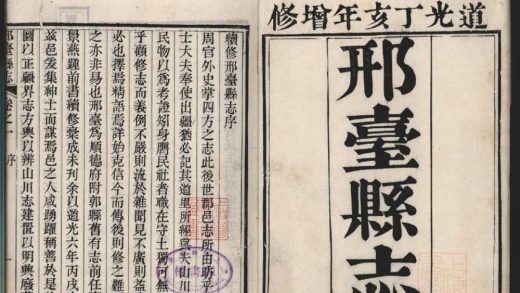 道光丁亥年增修
邢臺縣志
續修邢臺縣志序
周官外史掌四方之志此後世郡邑志所由昉乎
士大夫奉使出疆猶必記其道里所經與夫山川
民物以為考證矧身膺民社者職在守土獨可無
乎顧修志而義例不嚴則流於雜聞見不廣則
必也擇焉精語焉詳始克信今而傳後則修之難
之亦非易也邢臺為順德府附郭縣舊有志前任
景燕前書續修稾成未刊余以道光六年丙戌
茲邑爰集紳士而謀焉邑之人咸踴躍稱善於是
圖以正疆界志方輿以辨山川志建置以明興廢
邢臺縣志 卷之一 序